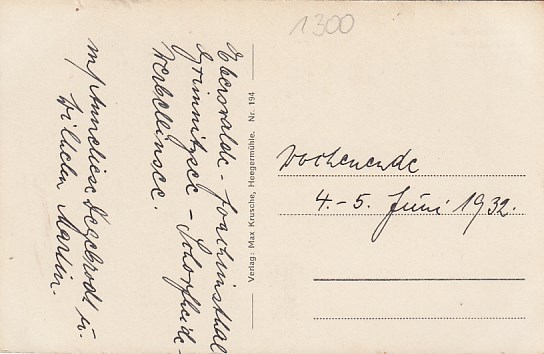 1300
Eberswalde - Joachimsthal
Grimnitzsee - Schorfheide -
Werbellinsee
m/ Anneliese u.
Wilhelm Martin.
Verlag: Max Krusche, Heegermühle. Nr. 194
Wochenende
4.-5. Juni 1932.